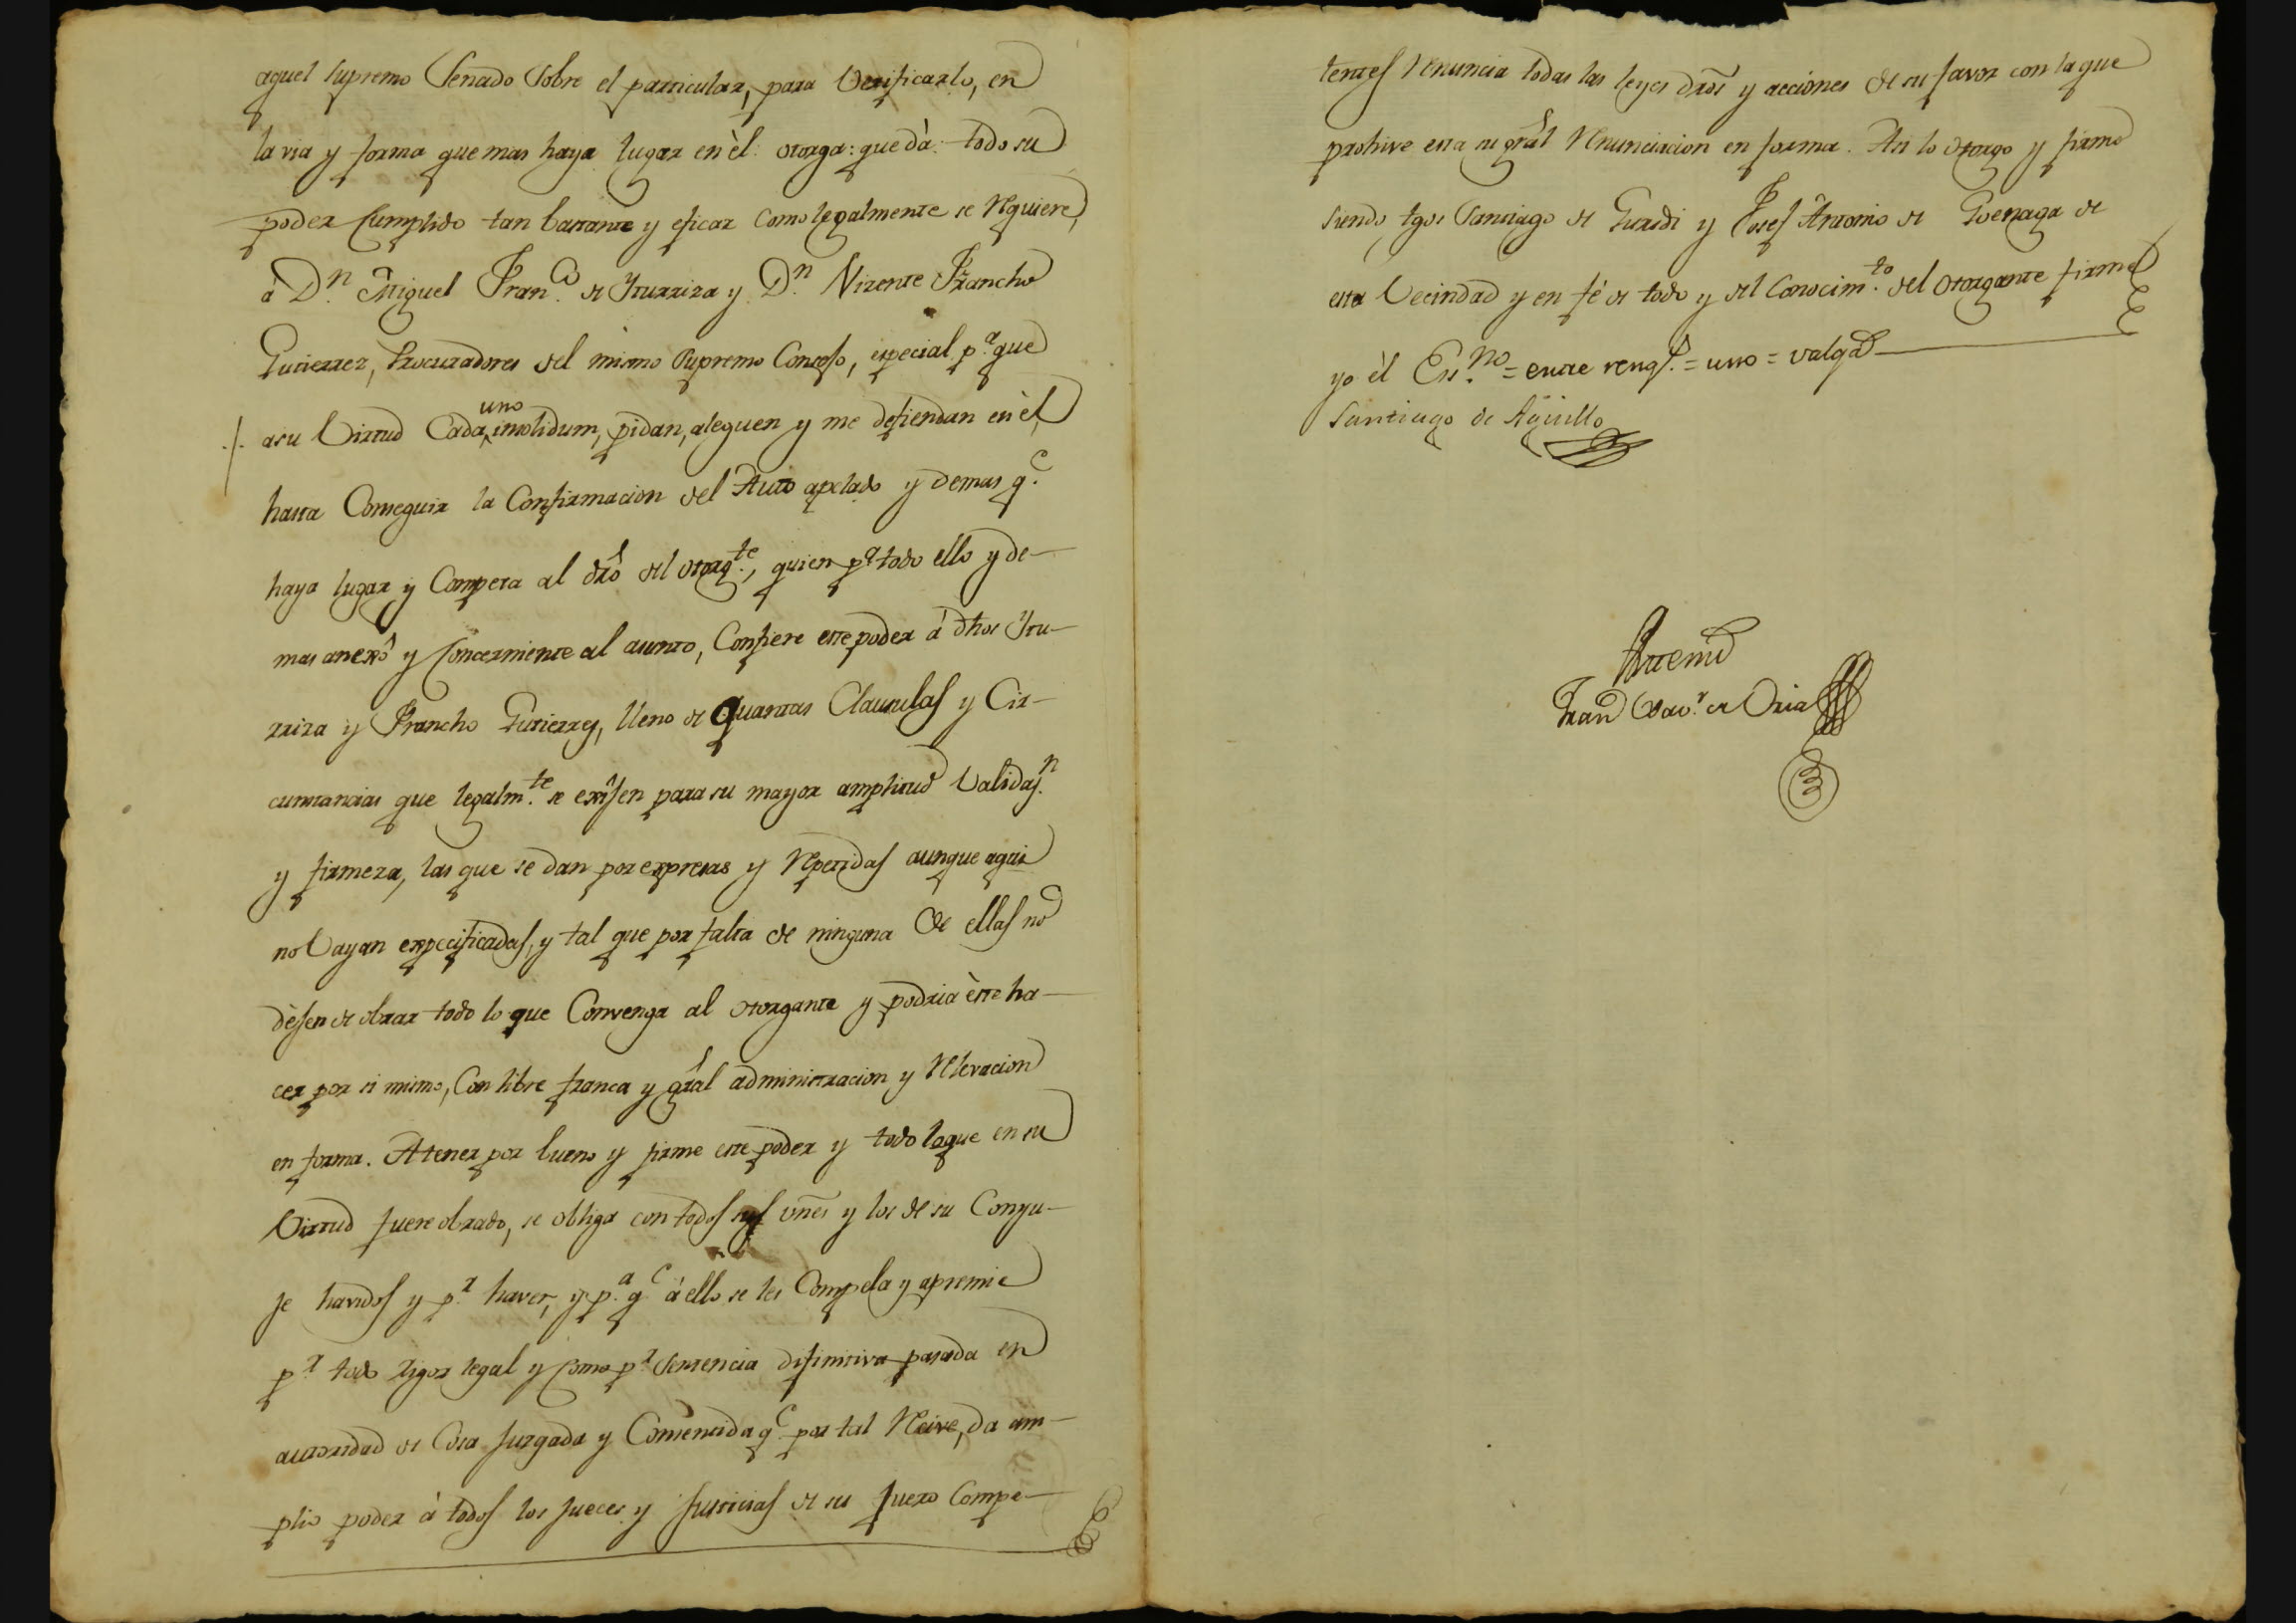 aquel supremo Senado Sobre el particular, para Verificarlo, en
la via y forma que mas haya lugar en èl: otorga: que dà: todo su
poder Cumplido tan bastante y eficaz como legalmente se requiere,
à D.n Miguel Fran.co de Yturriza y D.n Vizente Francho
Gutierrez, Procuradores del mismo Supremo Consejo, especial p.a que
asu Virtud Cada uno insolidum, pidan, aleguen y me defiendan en èl,
hasta Conseguir la Confirmacion del Auto apelado y demas q.e
haya lugar y Competa al dro del otorg.te, quien p.a todo ello y de-
mas anexò y Concerniente al asunto, Confiere este poder à dhos Ytu-
rriza y Francho Gutierrez, lleno de quantas Clausulas y Cir-
cunstancias que legalm.te se exijen para su mayor amplitud Validaz.n
y firmeza, las que se dan por expresas y repetidas aunque aqui
no Vayan expecificadas, y tal que por falta de ninguna de ellas no
dèjen de obrar todo lo que Convenga al otorgante y podria èste ha-
cer por si mismo, Con libre franca y gral administracion y relevacion
en forma. A tener por bueno y firme este poder y todo loque en su
Virtud fuere obrado, se obliga con todos sus vnes y los de su Conyu-
je havidos y p.r haver, y p.a q.e à ello se les Compela y apremie
p.r todo rigor legal y como p.r Sentencia difinitiva pasada en
autoridad de Cosa Juzgada y Consentida q.e por tal recive, da am-
plio poder à todos los Jueces y Justicias de su fuero Compe-
tentes renuncia todas las leyes dros y acciones de su favor con la que
prohive esta su gral renunciacion en forma. Asi lo otorgo y firmo
siendo tgos Santiago de Guridi y Josef Antonio de Goenaga de
esta Vecindad y en fé de todo y del Conocim.to del otorgante firme
yo èl Ess.no = entre rengs. = uno = valga
Santiago de Aguillo
Antemi
Fran.co Xav.r de Oria